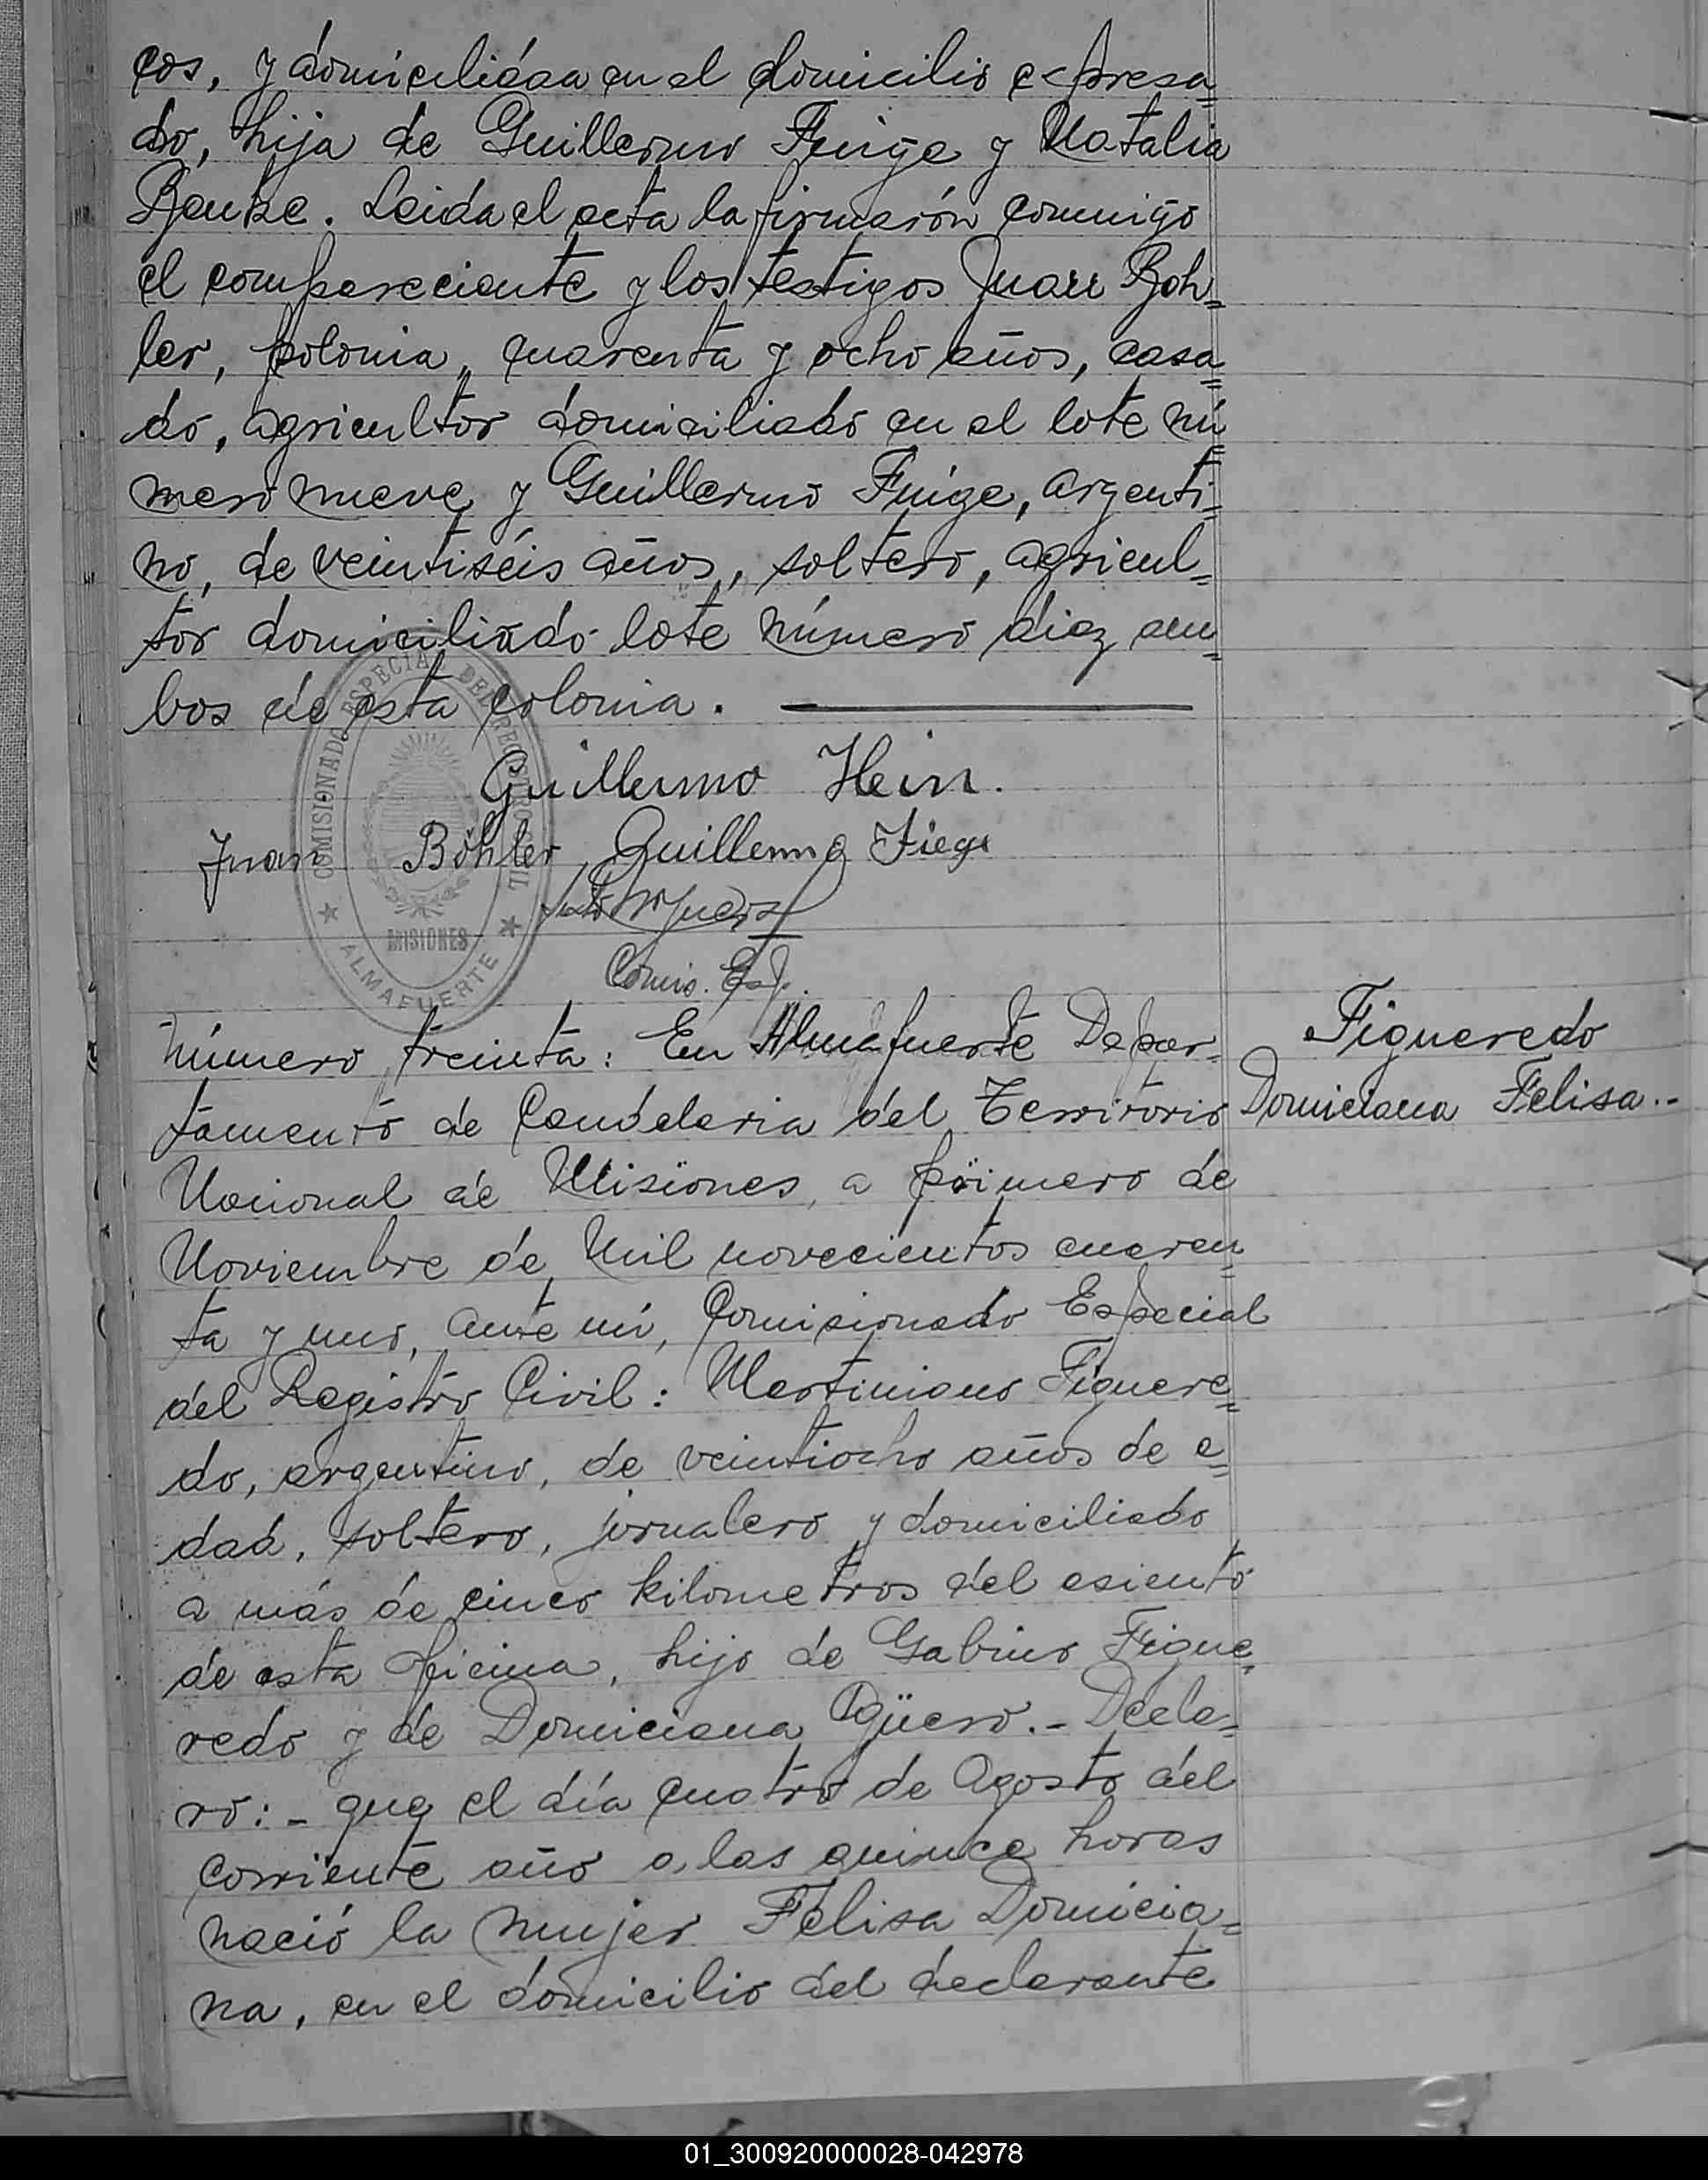 cos, y domiciliada en el domicilio expresa=
do, hija de Guillermo Feige y Natalia
Benke. Leida el acta la firmarón conmigo
el compareciente y los testigos Juan Boh=
ler, polonia, cuarenta y ocho años, casa=
do, agricultor domiciliado en el lote nú=
mero nueve y Guillermo Feige, argenti=
no, de veintiséis años, soltero, agricul=
tor domiciliado lote número diez am=
bos de esta colonia.
Guillermo Hein.
Juan Böhler Guillermo Fiege
Comis. Esp.
COMISIONADO ESPECIAL DEL REGISTRO CIVIL
MISIONES
ALMAFUERTE
Número treinta: En Almafuerte Depar=
tamento de Candelaria del Territorio
Nacional de Misiones, a primero de
Noviembre de Mil novecientos cuaren=
ta y uno, ante mí, Comisionado Especial
del Registro Civil: Martiniano Figuere=
do, argentino, de veintiocho años de e=
dad, soltero, jornalero y domiciliado
a más de cinco kilometros del asiento
de esta oficina, hijo de Gabino Figue=
redo y de Domiciana Agüero.- Decla=
ró:- que el día cuatro de Agosto del
corriente año a las quince horas
nació la mujer Felisa Domicia=
na, en el domicilio del declarante
Figueredo
Domiciana Felisa.-
01_300920000028-042978